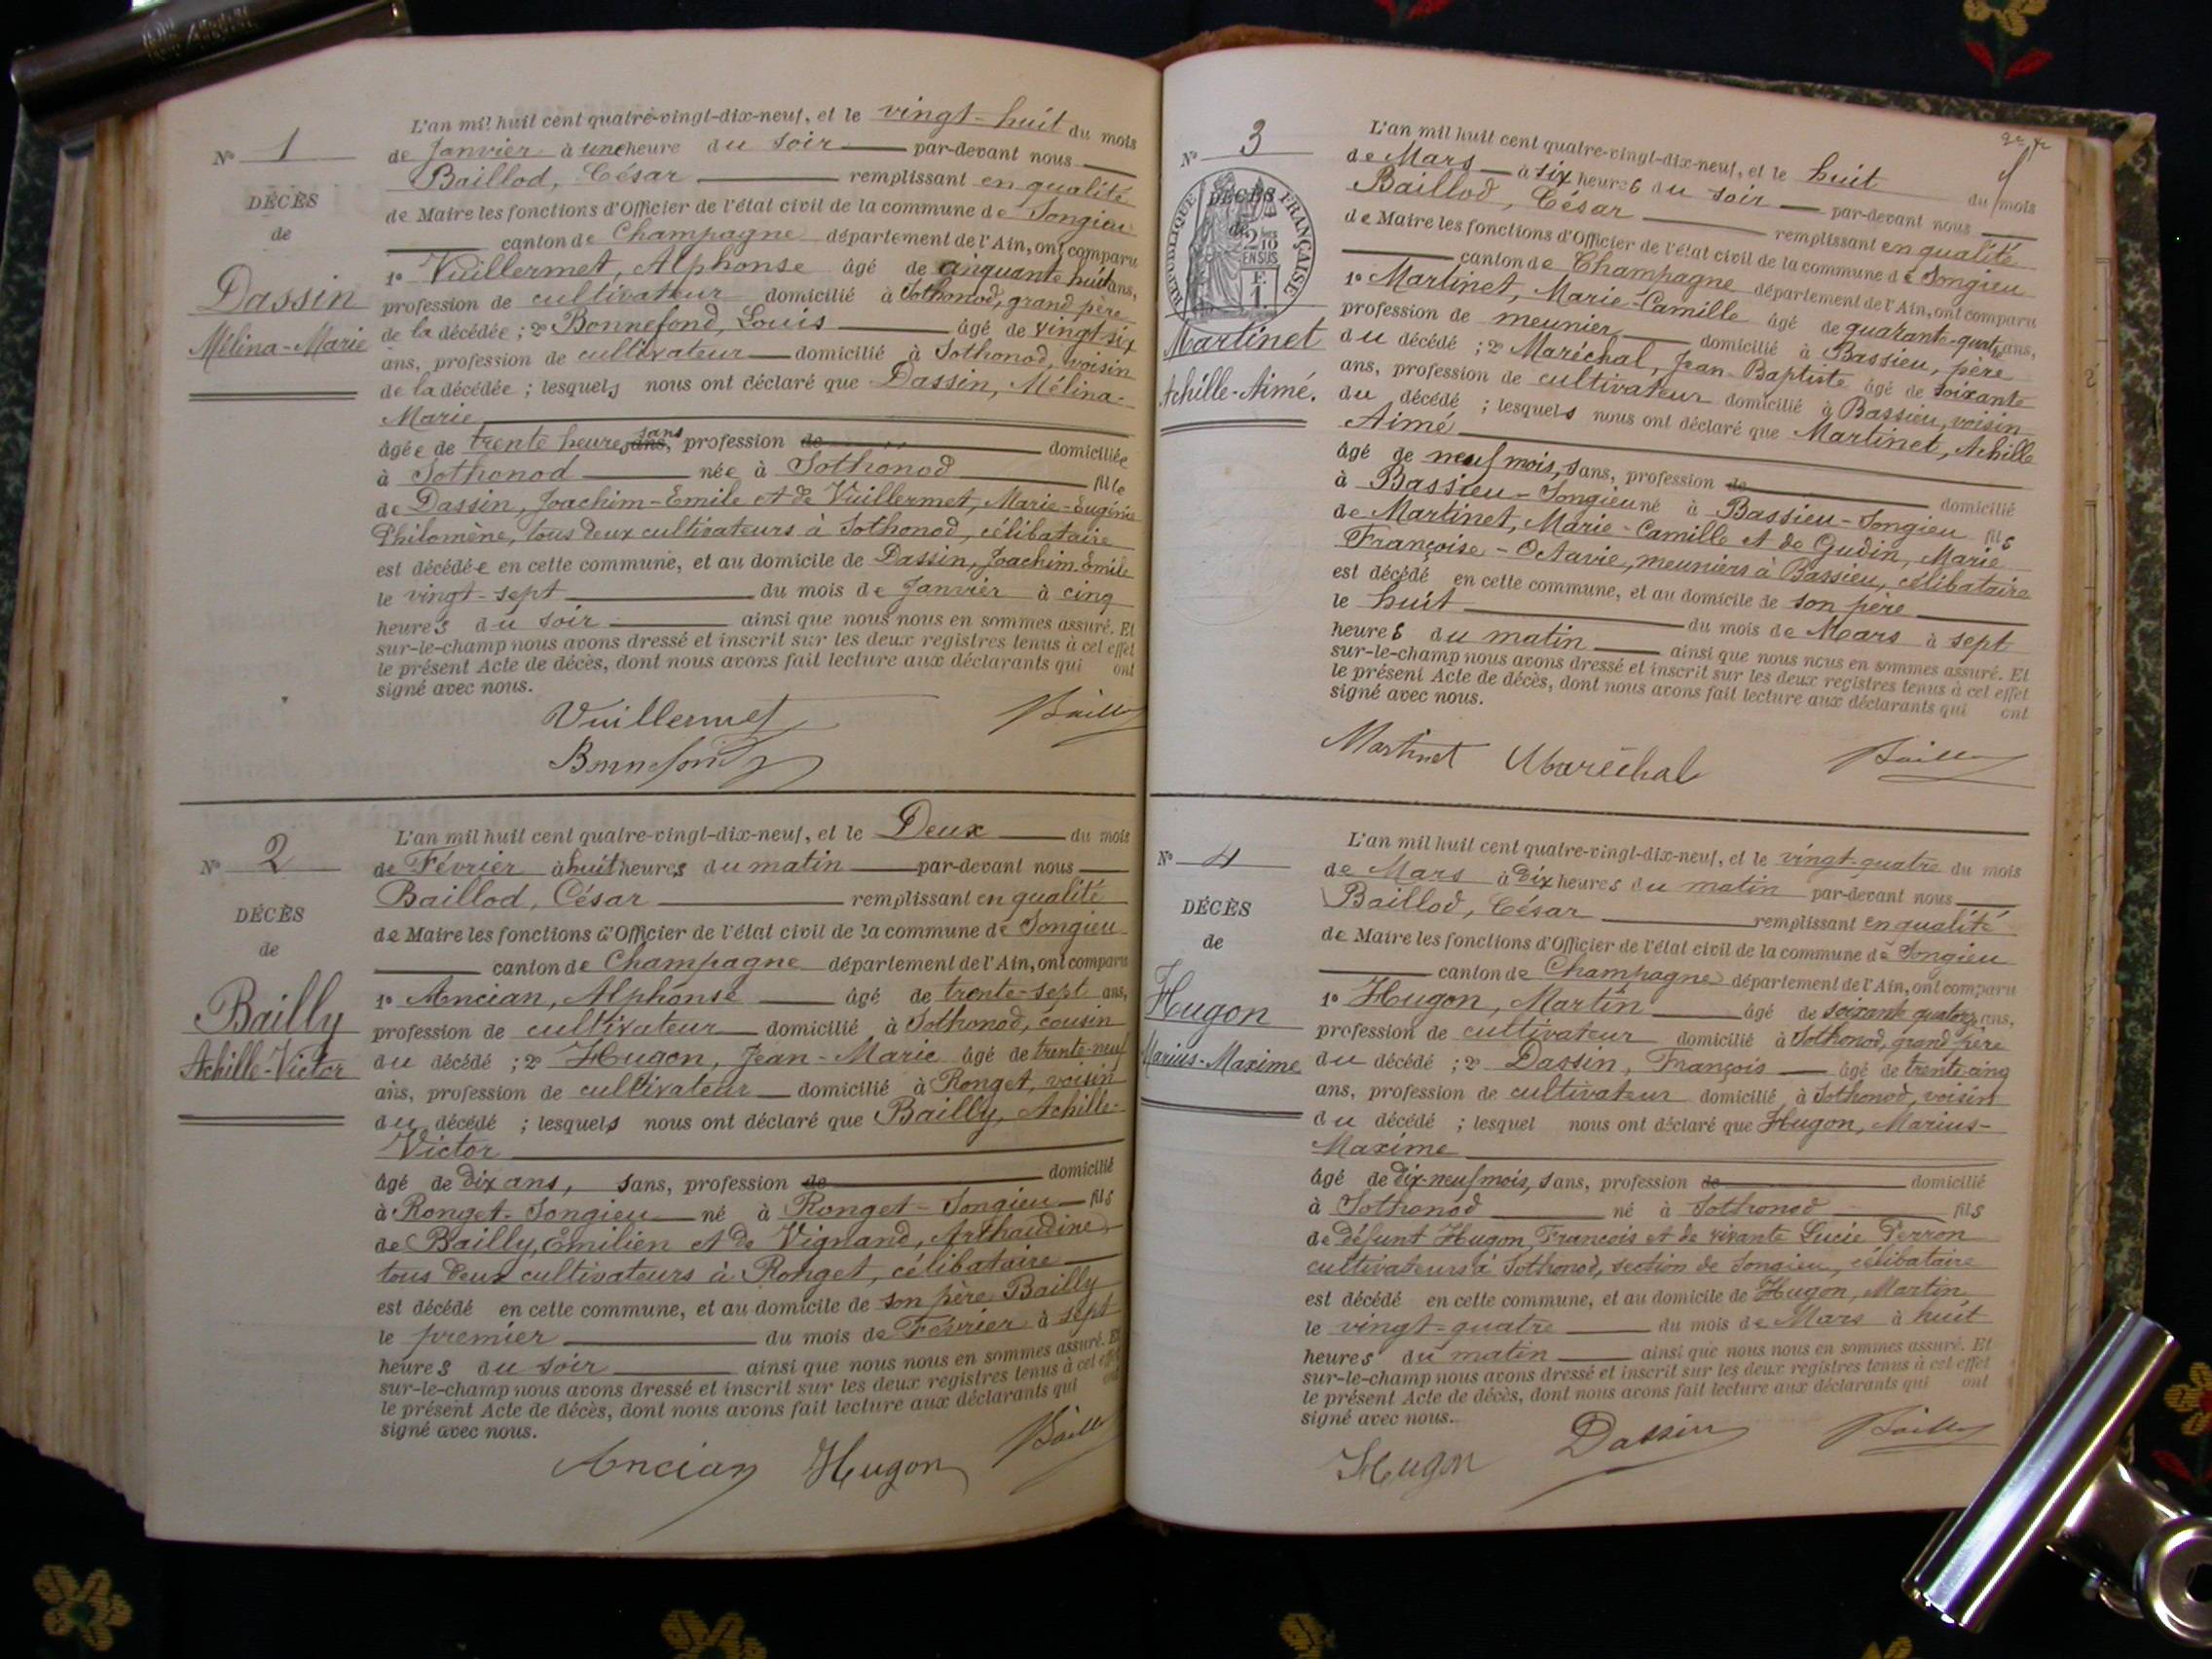 N° 1
DÉCÈS
de
Dassin
Mélina-Marie
L'an mil huit cent quatre-vingt-dix-neuf, et le vingt-huit du mois
de Janvier à une heure du soir par-devant nous
Baillod, César remplissant en qualité
de Maire les fonctions d'Officier de l'état civil de la commune de Songieu
canton de Champagne département de l'Ain, ont comparu
1° Vuillermet, Alphonse âgé de cinquante huit ans,
profession de cultivateur domicilié à Sothonod, grand père
de la décédée ; 2° Bonnefond, Louis âgé de vingt six
ans, profession de cultivateur domicilié à Sothonod, voisin
de la décédée ; lesquels nous ont déclaré que Dassin, Mélina-
Marie
âgée de trente heures, sans profession de domiciliée
à Sothonod née à Sothonod fille
de Dassin, Joachim-Emile et de Vuillermet, Marie-Eugénie
Philomène, tous deux cultivateurs à Sothonod, célibataire
est décédée en cette commune, et au domicile de Dassin, Joachim Emile
le vingt-sept du mois de Janvier à cinq
heures du soir ainsi que nous nous en sommes assuré. Et
sur-le-champ nous avons dressé et inscrit sur les deux registres tenus à cet effet
le présent Acte de décès, dont nous avons fait lecture aux déclarants qui ont
signé avec nous.
Vuillermet
Bonnefond
N° 2
DÉCÈS
de
Bailly
Achille-Victor
L'an mil huit cent quatre-vingt-dix-neuf, et le Deux du mois
de Février à huit heures du matin par-devant nous
Baillod, César remplissant en qualité
de Maire les fonctions d'Officier de l'état civil de la commune de Songieu
canton de Champagne département de l'Ain, ont comparu
1° Ancian, Alphonse âgé de trente-sept ans,
profession de cultivateur domicilié à Sothonod, cousin
du décédé ; 2° Hugon, Jean-Marie âgé de trente-neuf
ans, profession de cultivateur domicilié à Ronget, voisin
du décédé ; lesquels nous ont déclaré que Bailly, Achille-
Victor
âgé de dix ans, sans, profession de domicilié
à Ronget-Songieu né à Ronget-Songieu fils
de Bailly, Emilien et de Vignand, Arthaudine
tous deux cultivateurs à Ronget, célibataire
est décédé en cette commune, et au domicile de son père Bailly
le premier du mois de Février à sept
heures du soir ainsi que nous nous en sommes assuré. Et
sur-le-champ nous avons dressé et inscrit sur les deux registres tenus à cet effet
le présent Acte de décès, dont nous avons fait lecture aux déclarants qui ont
signé avec nous.
Ancian Hugon
N° 3
RÉPUBLIQUE FRANÇAISE
DÉCÈS
de
2 10
EN SUS
F.
1.
Martinet
Achille-Aimé.
L'an mil huit cent quatre-vingt-dix-neuf, et le huit du mois
de Mars à six heures du soir par-devant nous
Baillod, César remplissant en qualité
de Maire les fonctions d'Officier de l'état civil de la commune de Songieu
canton de Champagne département de l'Ain, ont comparu
1° Martinet, Marie-Camille âgé de quarante-quatre ans,
profession de meunier domicilié à Bassieu, père
du décédé ; 2° Maréchal, Jean Baptiste âgé de soixante
ans, profession de cultivateur domicilié à Bassieu, voisin
du décédé ; lesquels nous ont déclaré que Martinet, Achille
Aimé
âgé de neuf mois, sans, profession de domicilié
à Bassieu-Songieu né à Bassieu-Songieu fils
de Martinet, Marie-Camille et de Gudin, Marie
Françoise-Octavie, meuniers à Bassieu, célibataire
est décédé en cette commune, et au domicile de son père
le huit du mois de Mars à sept
heures du matin ainsi que nous nous en sommes assuré. Et
sur-le-champ nous avons dressé et inscrit sur les deux registres tenus à cet effet
le présent Acte de décès, dont nous avons fait lecture aux déclarants qui ont
signé avec nous.
Martinet Maréchal
N° 4
DÉCÈS
de
Hugon
Marius-Maxime
L'an mil huit cent quatre-vingt-dix-neuf, et le vingt-quatre du mois
de Mars à dix heures du matin par-devant nous
Baillod, César remplissant en qualité
de Maire les fonctions d'Officier de l'état civil de la commune de Songieu
canton de Champagne département de l'Ain, ont comparu
1° Hugon, Martin âgé de soixante quatorze ans,
profession de cultivateur domicilié à Sothonod, grand père
du décédé ; 2° Dassin, François âgé de trente-cinq
ans, profession de cultivateur domicilié à Sothonod, voisin
du décédé ; lesquel nous ont déclaré que Hugon, Marius-
Maxime
âgé de dix-neuf mois, sans, profession de domicilié
à Sothonod né à Sothonod fils
de défunt Hugon, Francois et de vivante Lucie Perron
cultivateurs à Sothonod, section de Songieu, célibataire
est décédé en cette commune, et au domicile de Hugon, Martin
le vingt-quatre du mois de Mars à huit
heures du matin ainsi que nous nous en sommes assuré. Et
sur-le-champ nous avons dressé et inscrit sur les deux registres tenus à cet effet
le présent Acte de décès, dont nous avons fait lecture aux déclarants qui ont
signé avec nous.
Hugon Dassin